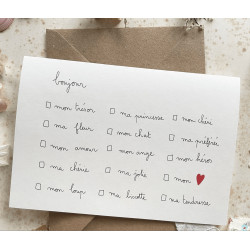 bonjour
☐ mon trésor ☐ ma princesse ☐ mon chéri
☐ ma fleur ☐ mon chat ☐ ma préférée
☐ mon amour ☐ mon ange ☐ mon héros
☐ ma chérie ☐ ma jolie ☐ mon ♥
☐ mon loup ☐ ma bicotte ☐ ma tendresse